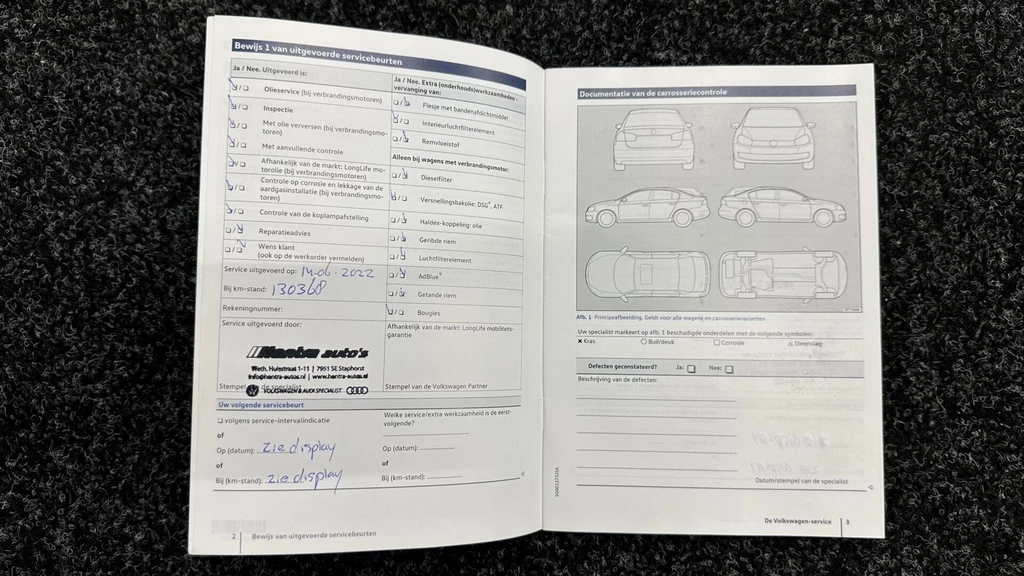 Bewijs 1 van uitgevoerde servicebeurten
Ja / Nee. Uitgevoerd is:
Olieservice (bij verbrandingsmotoren)
Inspectie
Met olie verversen (bij verbrandingsmo-
toren)
Met aanvullende controle
Afhankelijk van de markt: LongLife mo-
torolie (bij verbrandingsmotoren)
Controle op corrosie en lekkage van de
aardgasinstallatie (bij verbrandingsmo-
toren)
Controle van de koplampafstelling
Reparatieadvies
Wens klant
(ook op de werkorder vermelden)
Service uitgevoerd op: 14-06-2022
Bij km-stand: 130368
Rekeningnummer:
Service uitgevoerd door:
Hantra auto's
Weth. Hulststraat 1-11 | 7951 SE Staphorst
info@hantra-autos.nl | www.hantra-autos.nl
Stempel de specialist
VOLKSWAGEN & AUDI SPECIALIST
Ja / Nee. Extra (onderhouds)werkzaamheden -
vervanging van:
Flesje met bandenafdichtmiddel
Interieurluchtfilterelement
Remvloeistof
Alleen bij wagens met verbrandingsmotor:
Dieselfilter
Versnellingsbakolie: DSG®, ATF
Haldex-koppeling: olie
Geribde riem
Luchtfilterelement
AdBlue®
Getande riem
Bougies
Afhankelijk van de markt: LongLife mobiliteits-
garantie
Stempel van de Volkswagen Partner
Uw volgende servicebeurt
volgens service-intervalindicatie
of
Op (datum): zie display
of
Bij (km-stand): zie display
Welke service/extra werkzaamheid is de eerst-
volgende?
Op (datum):
of
Bij (km-stand):
2 Bewijs van uitgevoerde servicebeurten
Documentatie van de carrosseriecontrole
Afb. 1 Principeafbeelding. Geldt voor alle wagens en carrosserievarianten
Uw specialist markeert op afb. 1 beschadigde onderdelen met de volgende symbolen:
× Kras Buil/deuk Corrosie Steenslag
Defecten geconstateerd? Ja: Nee:
Beschrijving van de defecten:
Datum/stempel van de specialist
De Volkswagen-service 3